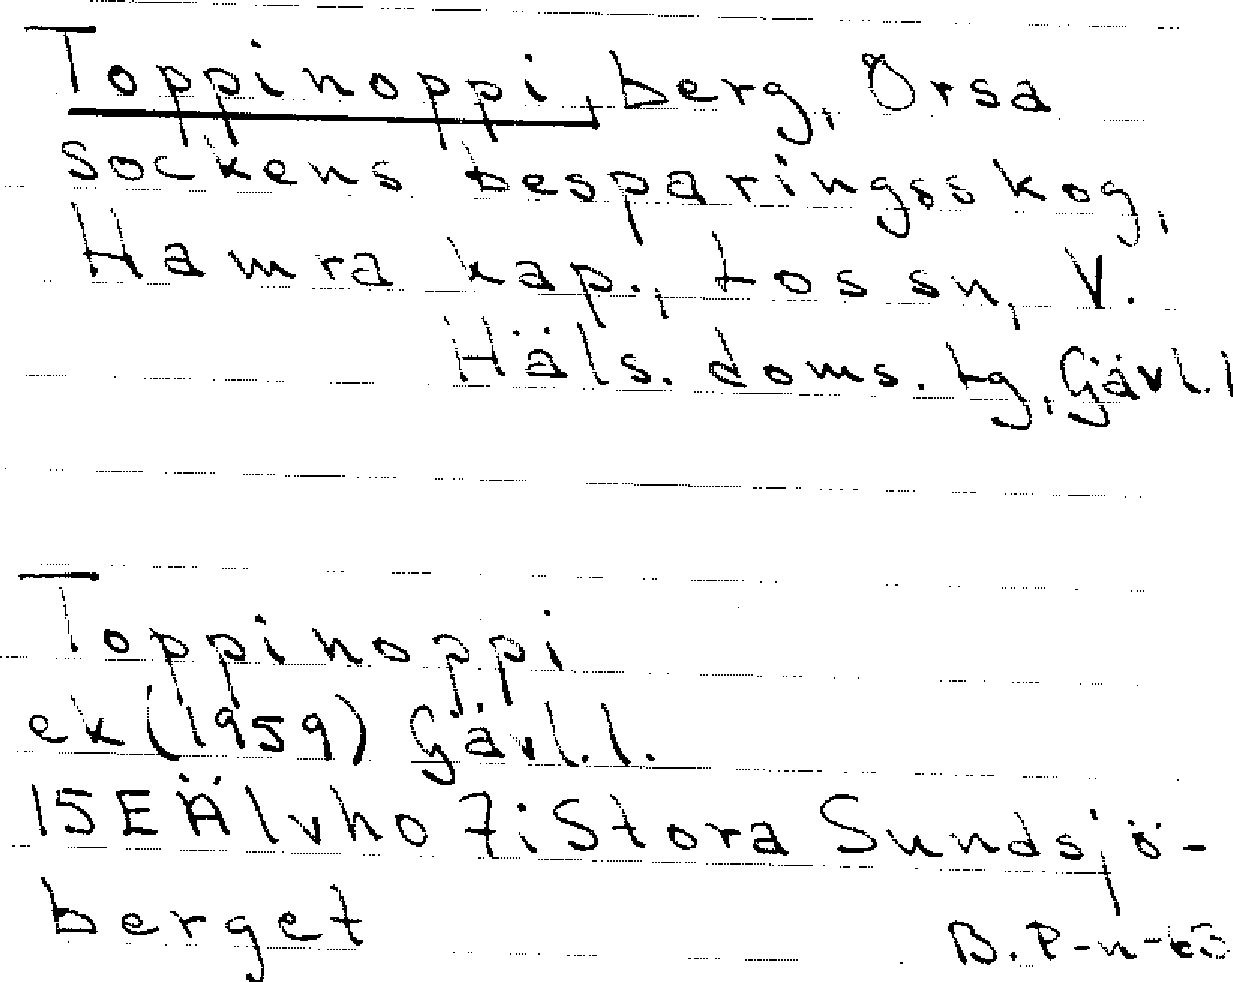 Toppinoppi, berg, Orsa
sockens besparingsskog,
Hamra kap., Los sn, V.
Häls. doms. tg, Gävl.l
Toppinoppi
ek (1959) Gävl.l.
15E Älvho 7i Stora Sundsjö-
berget
B. P-n-63